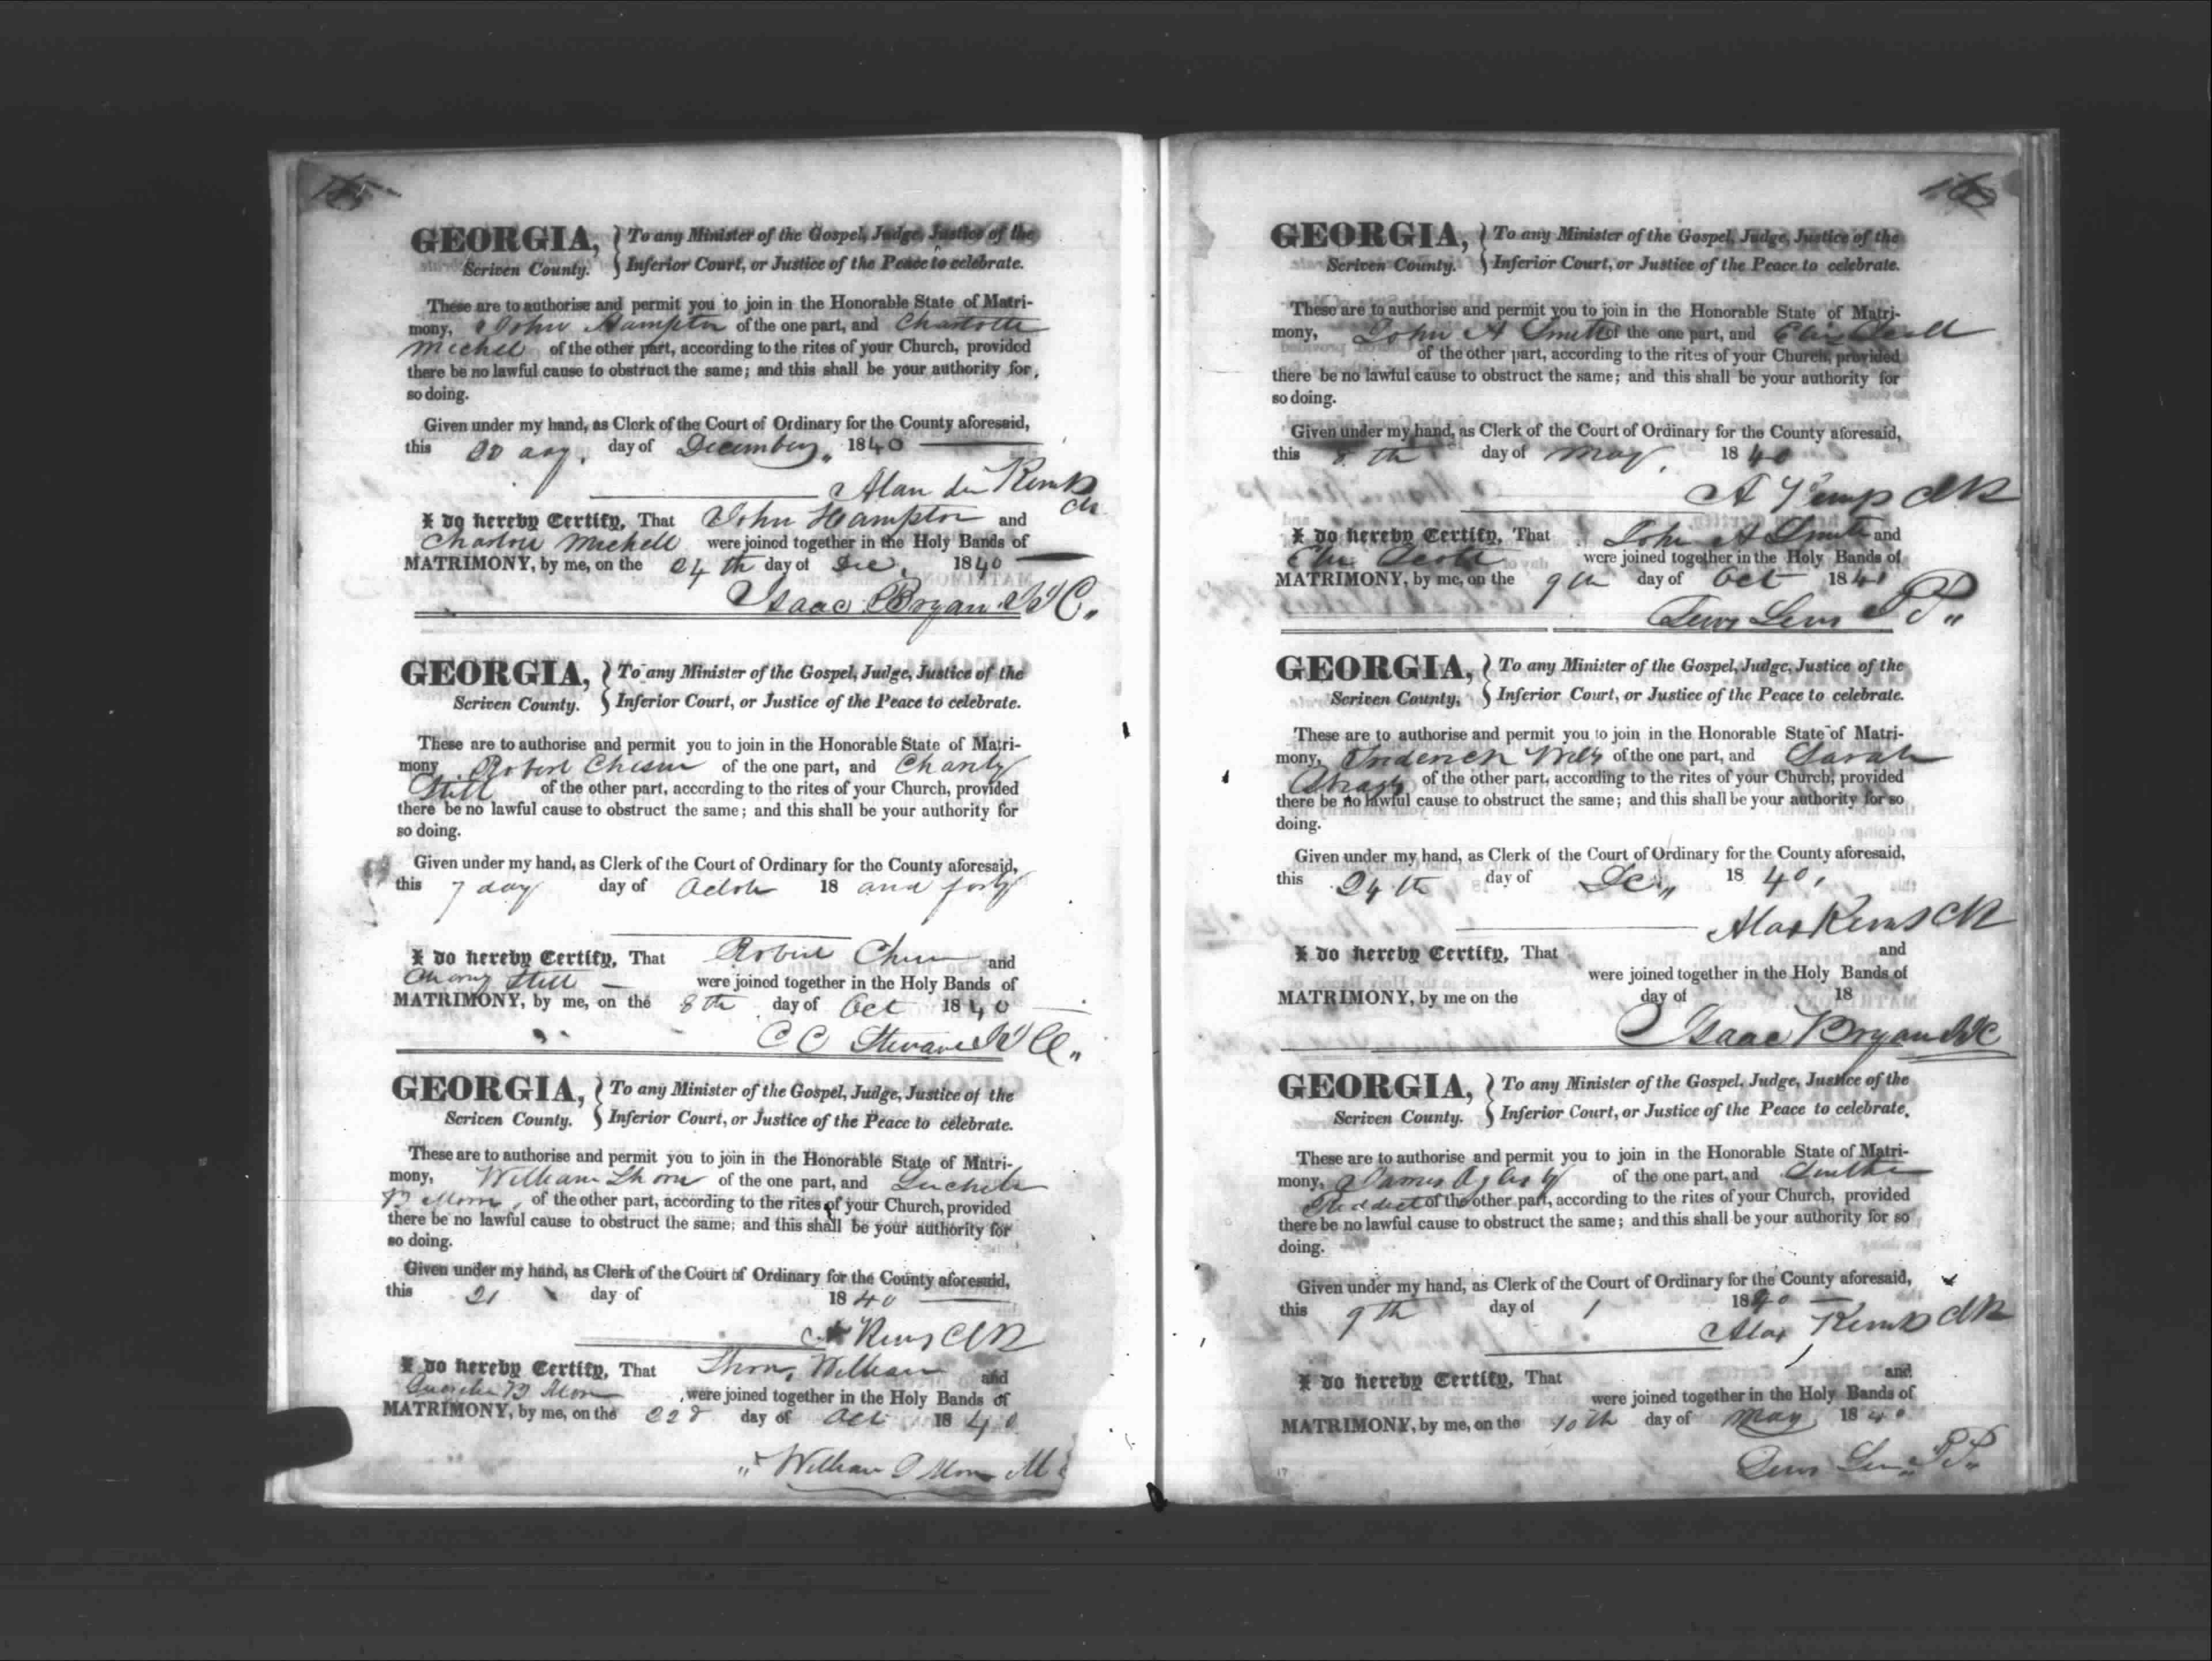 GEORGIA, To any Minister of the Gospel, Judge, Justice of the
Scriven County. Inferior Court, or Justice of the Peace to celebrate.
These are to authorise and permit you to join in the Honorable State of Matri-
mony, John Hampton of the one part, and Charlotte
Michel of the other part, according to the rites of your Church, provided
there be no lawful cause to obstruct the same; and this shall be your authority for
so doing.
Given under my hand, as Clerk of the Court of Ordinary for the County aforesaid,
this 20 day of December 1840
I do hereby Certify, That John Hampton and
Michell were joined together in the Holy Bands of
MATRIMONY, by me, on the 24th day of Dec. 1840
Isaac Bryan
GEORGIA, To any Minister of the Gospel, Judge, Justice of the
Scriven County. Inferior Court, or Justice of the Peace to celebrate.
These are to authorise and permit you to join in the Honorable State of Matri-
mony Robert of the one part, and Charity
Still of the other part, according to the rites of your Church, provided
there be no lawful cause to obstruct the same; and this shall be your authority for
so doing.
Given under my hand, as Clerk of the Court of Ordinary for the County aforesaid,
this 7 day day of 18 and forty
I do hereby Certify, That and
Still were joined together in the Holy Bands of
MATRIMONY, by me, on the 8th day of Oct 1840
C C
GEORGIA, To any Minister of the Gospel, Judge, Justice of the
Scriven County. Inferior Court, or Justice of the Peace to celebrate.
These are to authorise and permit you to join in the Honorable State of Matri-
mony, William of the one part, and
of the other part, according to the rites of your Church, provided
there be no lawful cause to obstruct the same; and this shall be your authority for
so doing.
Given under my hand, as Clerk of the Court of Ordinary for the County aforesaid,
this 21 day of 1840
I do hereby Certify, That William and
were joined together in the Holy Bands of
MATRIMONY, by me, on the 22d day of Oct 1840
William
GEORGIA, To any Minister of the Gospel, Judge, Justice of the
Scriven County. Inferior Court, or Justice of the Peace to celebrate.
These are to authorise and permit you to join in the Honorable State of Matri-
mony, John A Smith of the one part, and
of the other part, according to the rites of your Church, provided
there be no lawful cause to obstruct the same; and this shall be your authority for
so doing.
Given under my hand, as Clerk of the Court of Ordinary for the County aforesaid,
this 8th day of May 1840
A Kemp
I do hereby Certify, That John A Smith and
were joined together in the Holy Bands of
MATRIMONY, by me, on the 9th day of Oct 1840
GEORGIA, To any Minister of the Gospel, Judge, Justice of the
Scriven County, Inferior Court, or Justice of the Peace to celebrate.
These are to authorise and permit you to join in the Honorable State of Matri-
mony, of the one part, and Sarah
of the other part, according to the rites of your Church, provided
there be no lawful cause to obstruct the same; and this shall be your authority for so
doing.
Given under my hand, as Clerk of the Court of Ordinary for the County aforesaid,
this 24th day of Dec 1840
I do hereby Certify, That and
were joined together in the Holy Bands of
MATRIMONY, by me on the day of 18
Isaac Bryan
GEORGIA, To any Minister of the Gospel, Judge, Justice of the
Scriven County. Inferior Court, or Justice of the Peace to celebrate.
These are to authorise and permit you to join in the Honorable State of Matri-
mony, James of the one part, and
of the other part, according to the rites of your Church, provided
there be no lawful cause to obstruct the same; and this shall be your authority for so
doing.
Given under my hand, as Clerk of the Court of Ordinary for the County aforesaid,
this 9th day of 1840
Kemp
I do hereby Certify, That and
were joined together in the Holy Bands of
MATRIMONY, by me, on the 10th day of May 1840
17